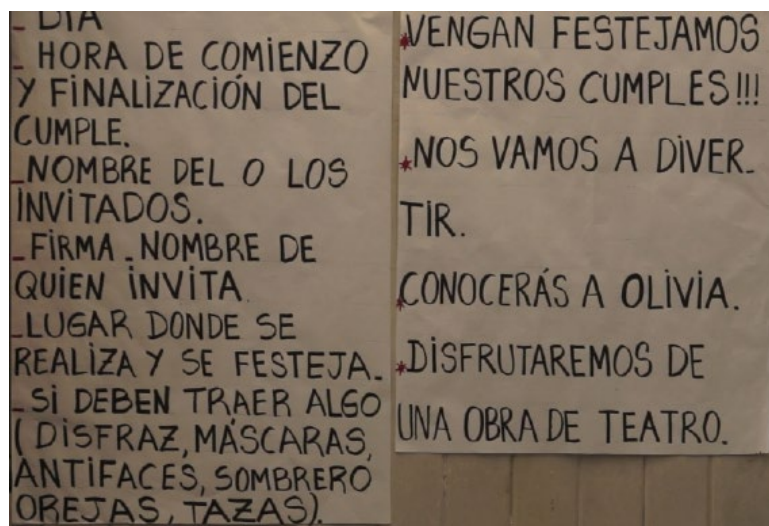 _ DIA
_ HORA DE COMIENZO
Y FINALIZACIÓN DEL
CUMPLE.
_NOMBRE DEL O LOS
INVITADOS.
_FIRMA_NOMBRE DE
QUIEN INVITA
_LUGAR DONDE SE
REALIZA Y SE FESTEJA_
_SI DEBEN TRAER ALGO
(DISFRAZ, MÁSCARAS,
ANTIFACES, SOMBRERO
OREJAS, TAZAS).
*VENGAN FESTEJAMOS
NUESTROS CUMPLES!!!
*NOS VAMOS A DIVER_
TIR.
*CONOCERÁS A OLIVIA.
*DISFRUTAREMOS DE
UNA OBRA DE TEATRO.